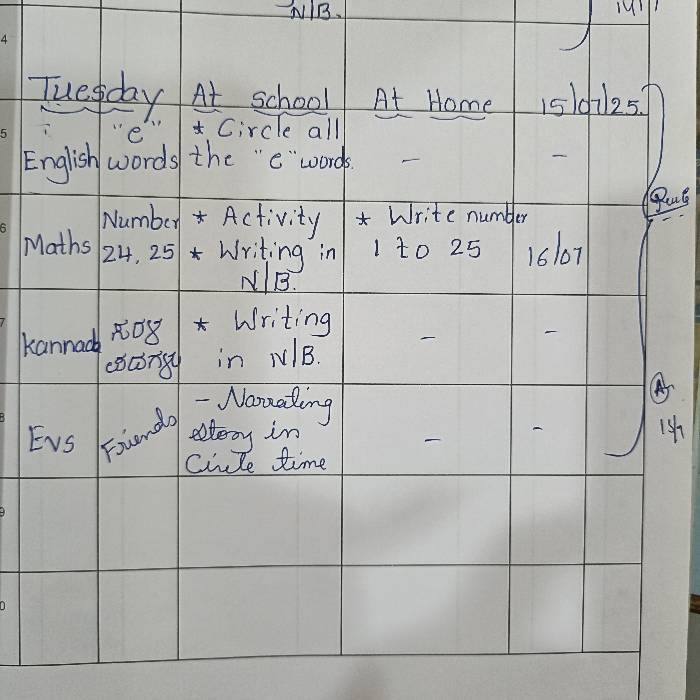 N/B.
4
Tuesday At school At Home 15/07/25.
5
English "e" words * Circle all the "e" words. - -
6
Maths Number 24, 25 * Activity * Writing in N/B. * Write number 1 to 25 16/07
7
kannada ಸರಳ ಪದಗಳು * Writing in N/B. - -
8
EVS Friends - Narrating story in Circle time - -
9
0
A
15/7